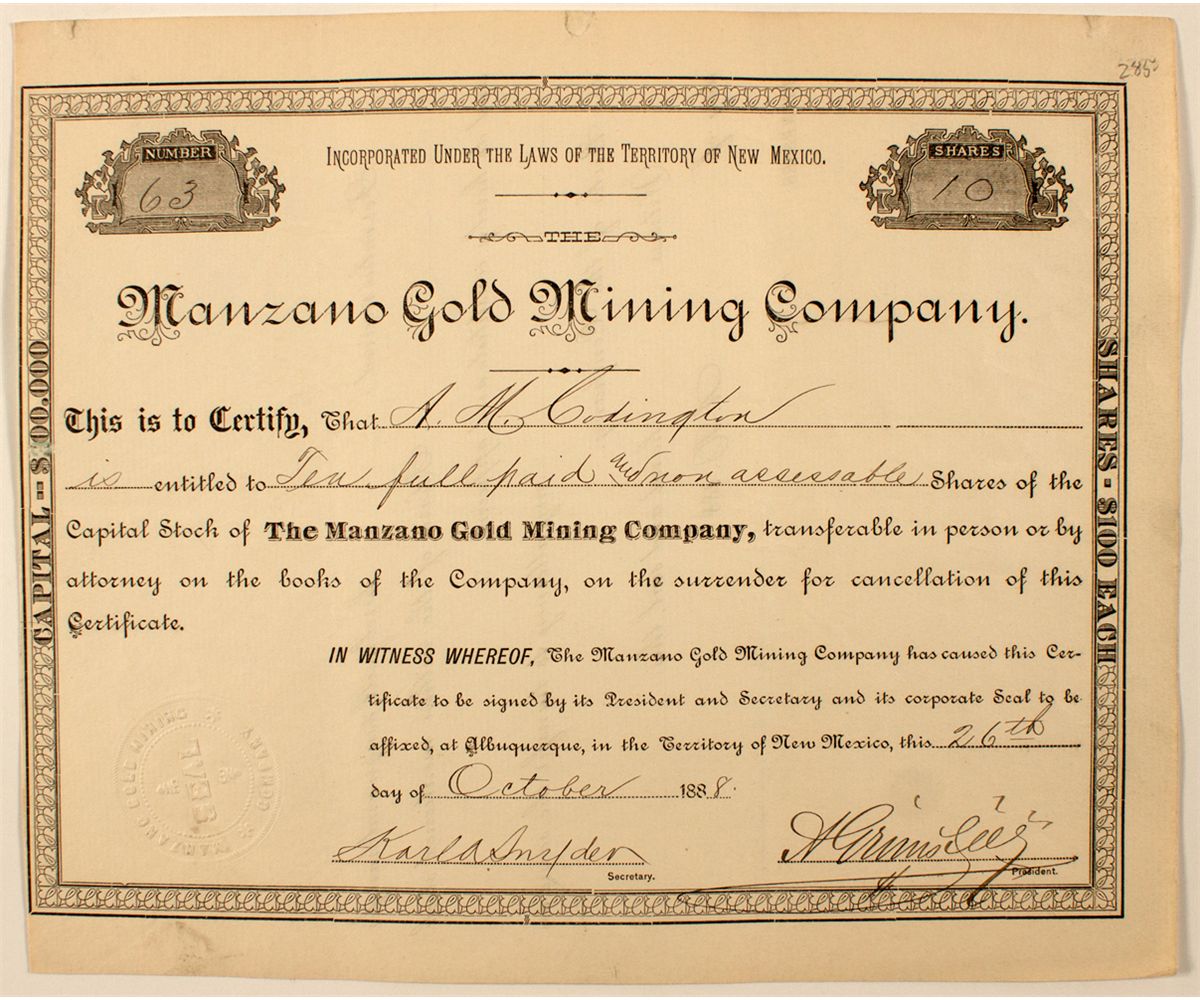 285
NUMBER
63
INCORPORATED UNDER THE LAWS OF THE TERRITORY OF NEW MEXICO.
SHARES
10
THE
Manzano Gold Mining Company.
CAPITAL--$ 00.000
SHARES - $100 EACH
This is to Certify, That A. M. Codington
is entitled to Ten full paid and non assessable Shares of the
Capital Stock of The Manzano Gold Mining Company, transferable in person or by
attorney on the books of the Company, on the surrender for cancellation of this
Certificate.
IN WITNESS WHEREOF, The Manzano Gold Mining Company has caused this Cer-
tificate to be signed by its President and Secretary and its corporate Seal to be
affixed, at Albuquerque, in the Territory of New Mexico, this 26th
day of October 1888.
MANZANO GOLD MINING COMPANY
Karl A Snyder
Secretary.
President.